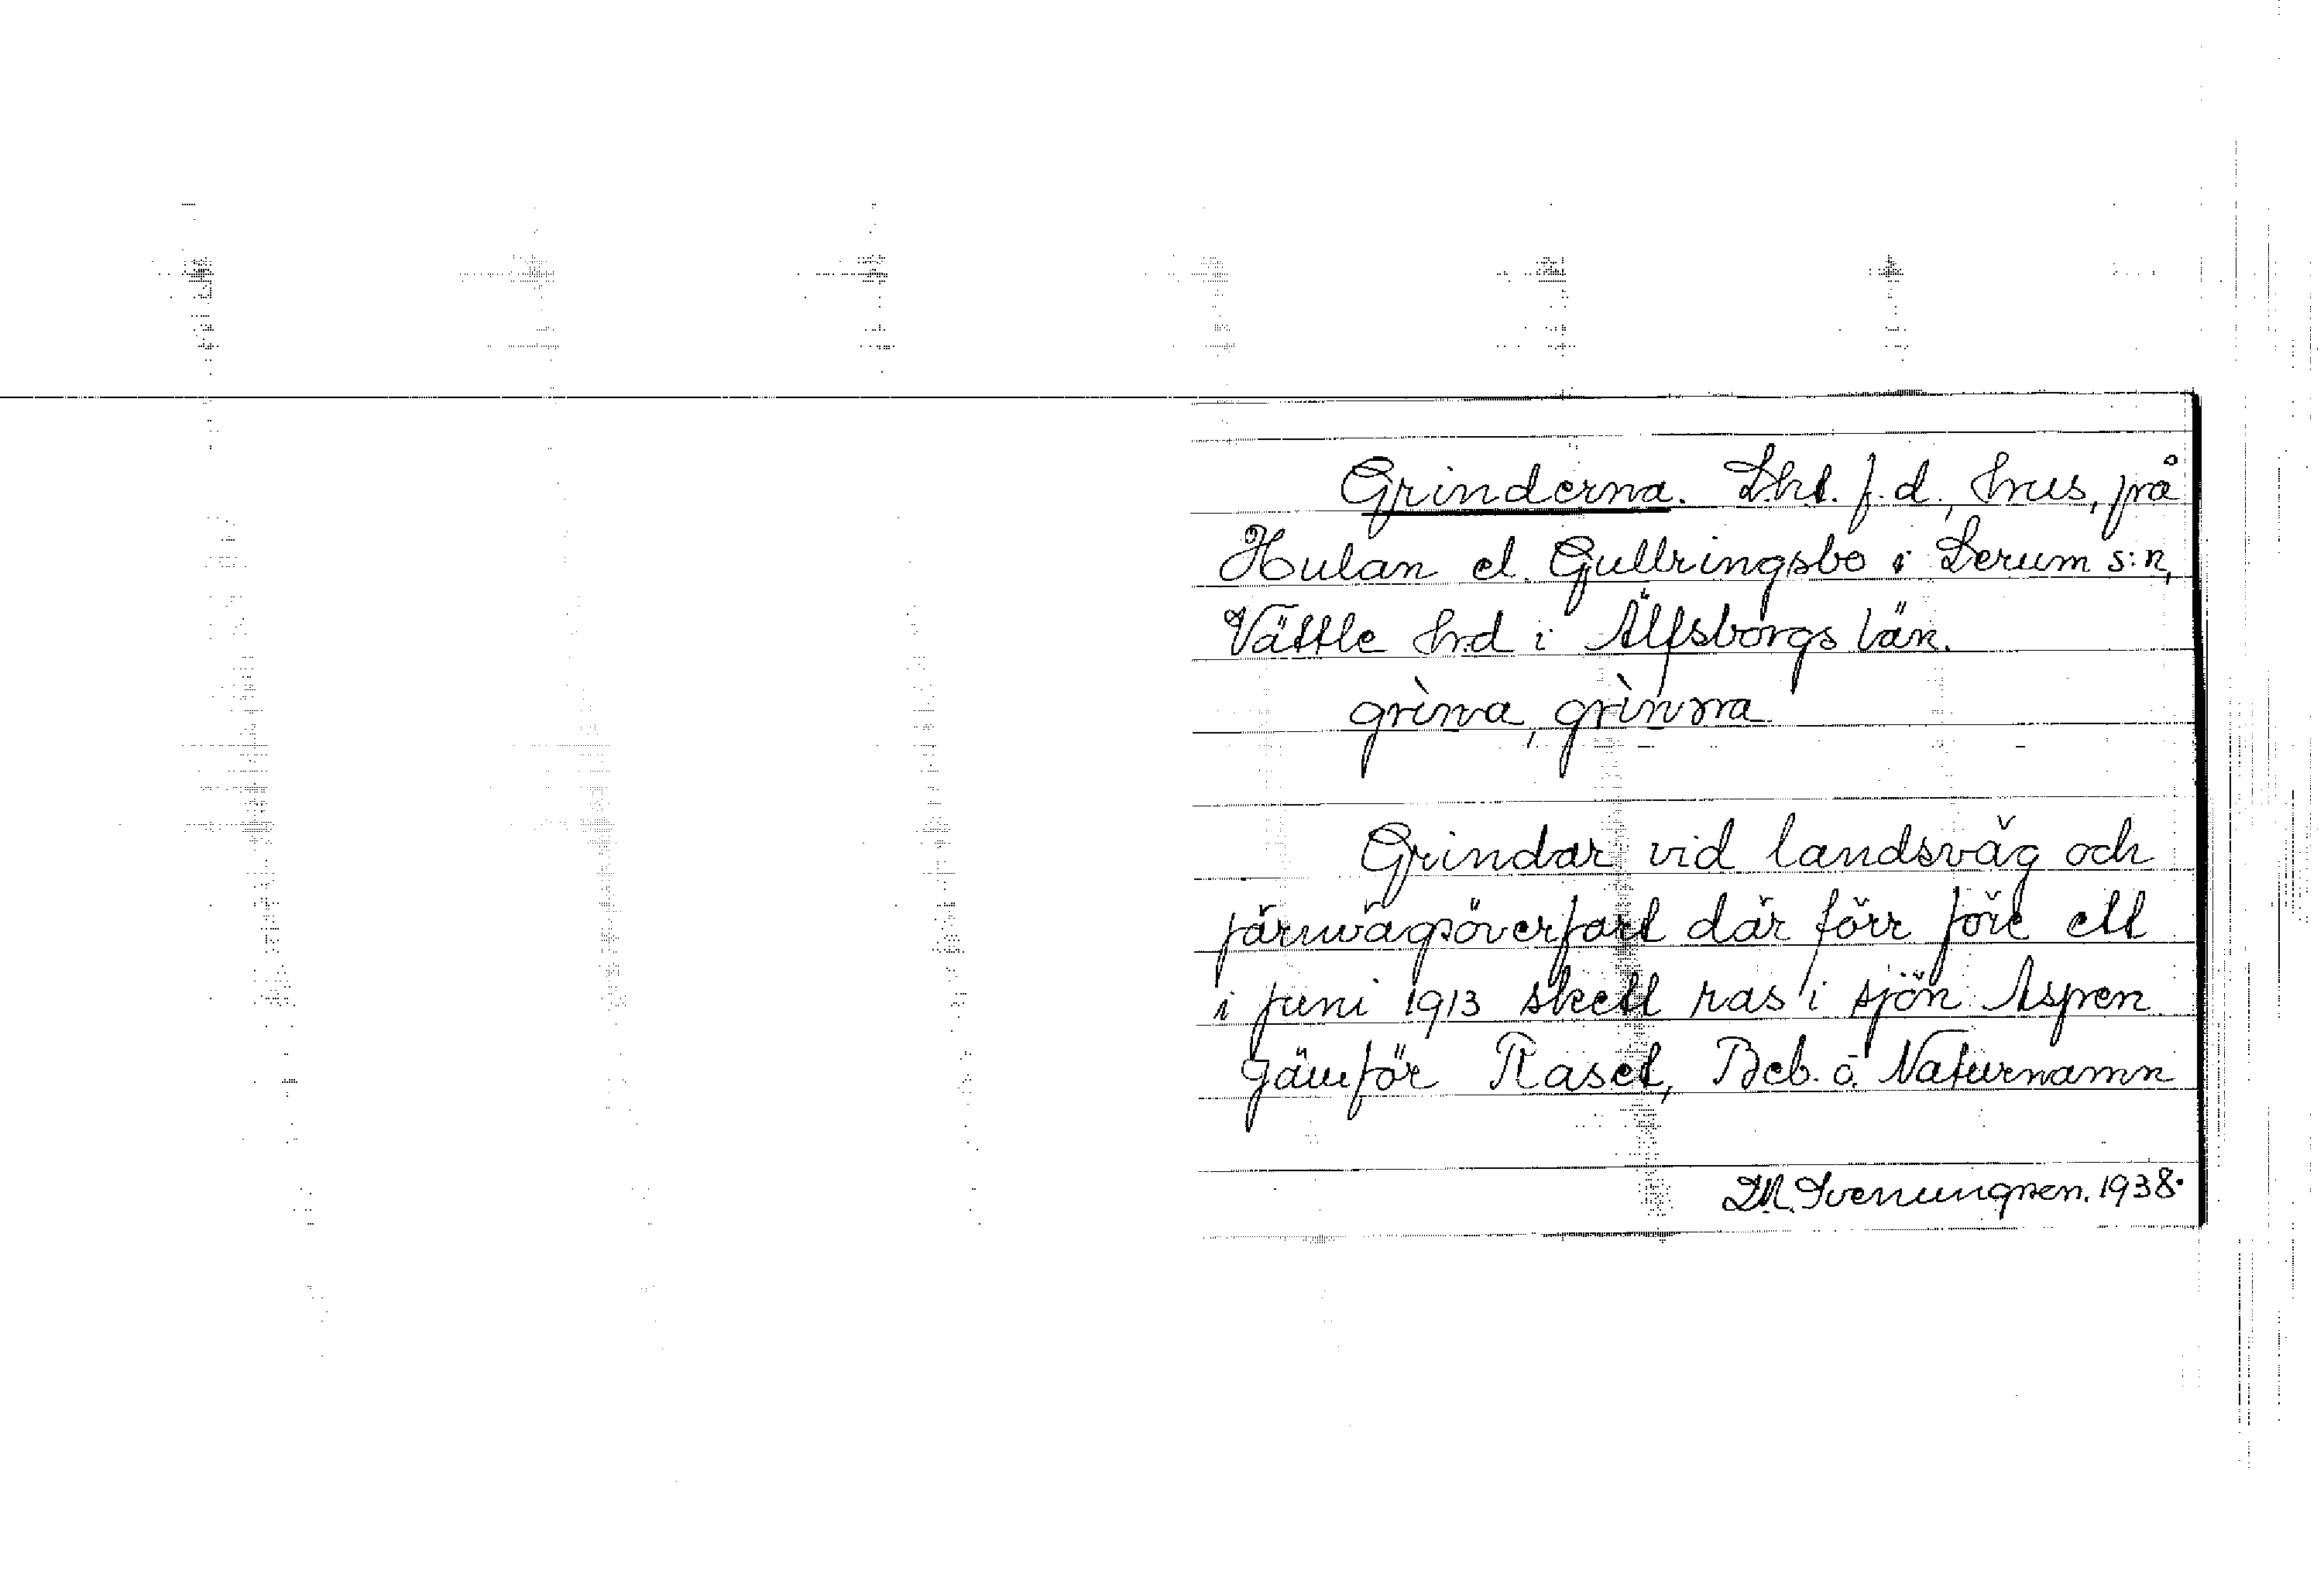 Grinderna. Lht. f.d. hus, på
Hulan el. Gullringsbo i Lerum s:n,
Vättle hrd i Älfsborgs län.
grìnna, grìnna
Grindar vid landsväg och
järnvägsöverfart där förr före ett
i juni 1913 skett ras i sjön Aspen
Jämför Raset, Beb. o. Naturnamn
D.M. Svenungsen. 1938.